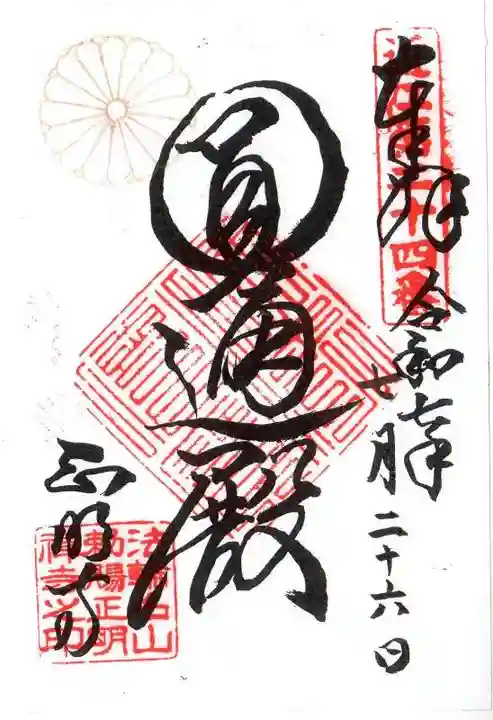 奉拝
令和七年
七月二十六日
圓通殿
正明寺
法輪山
勅賜正明
禅寺之印